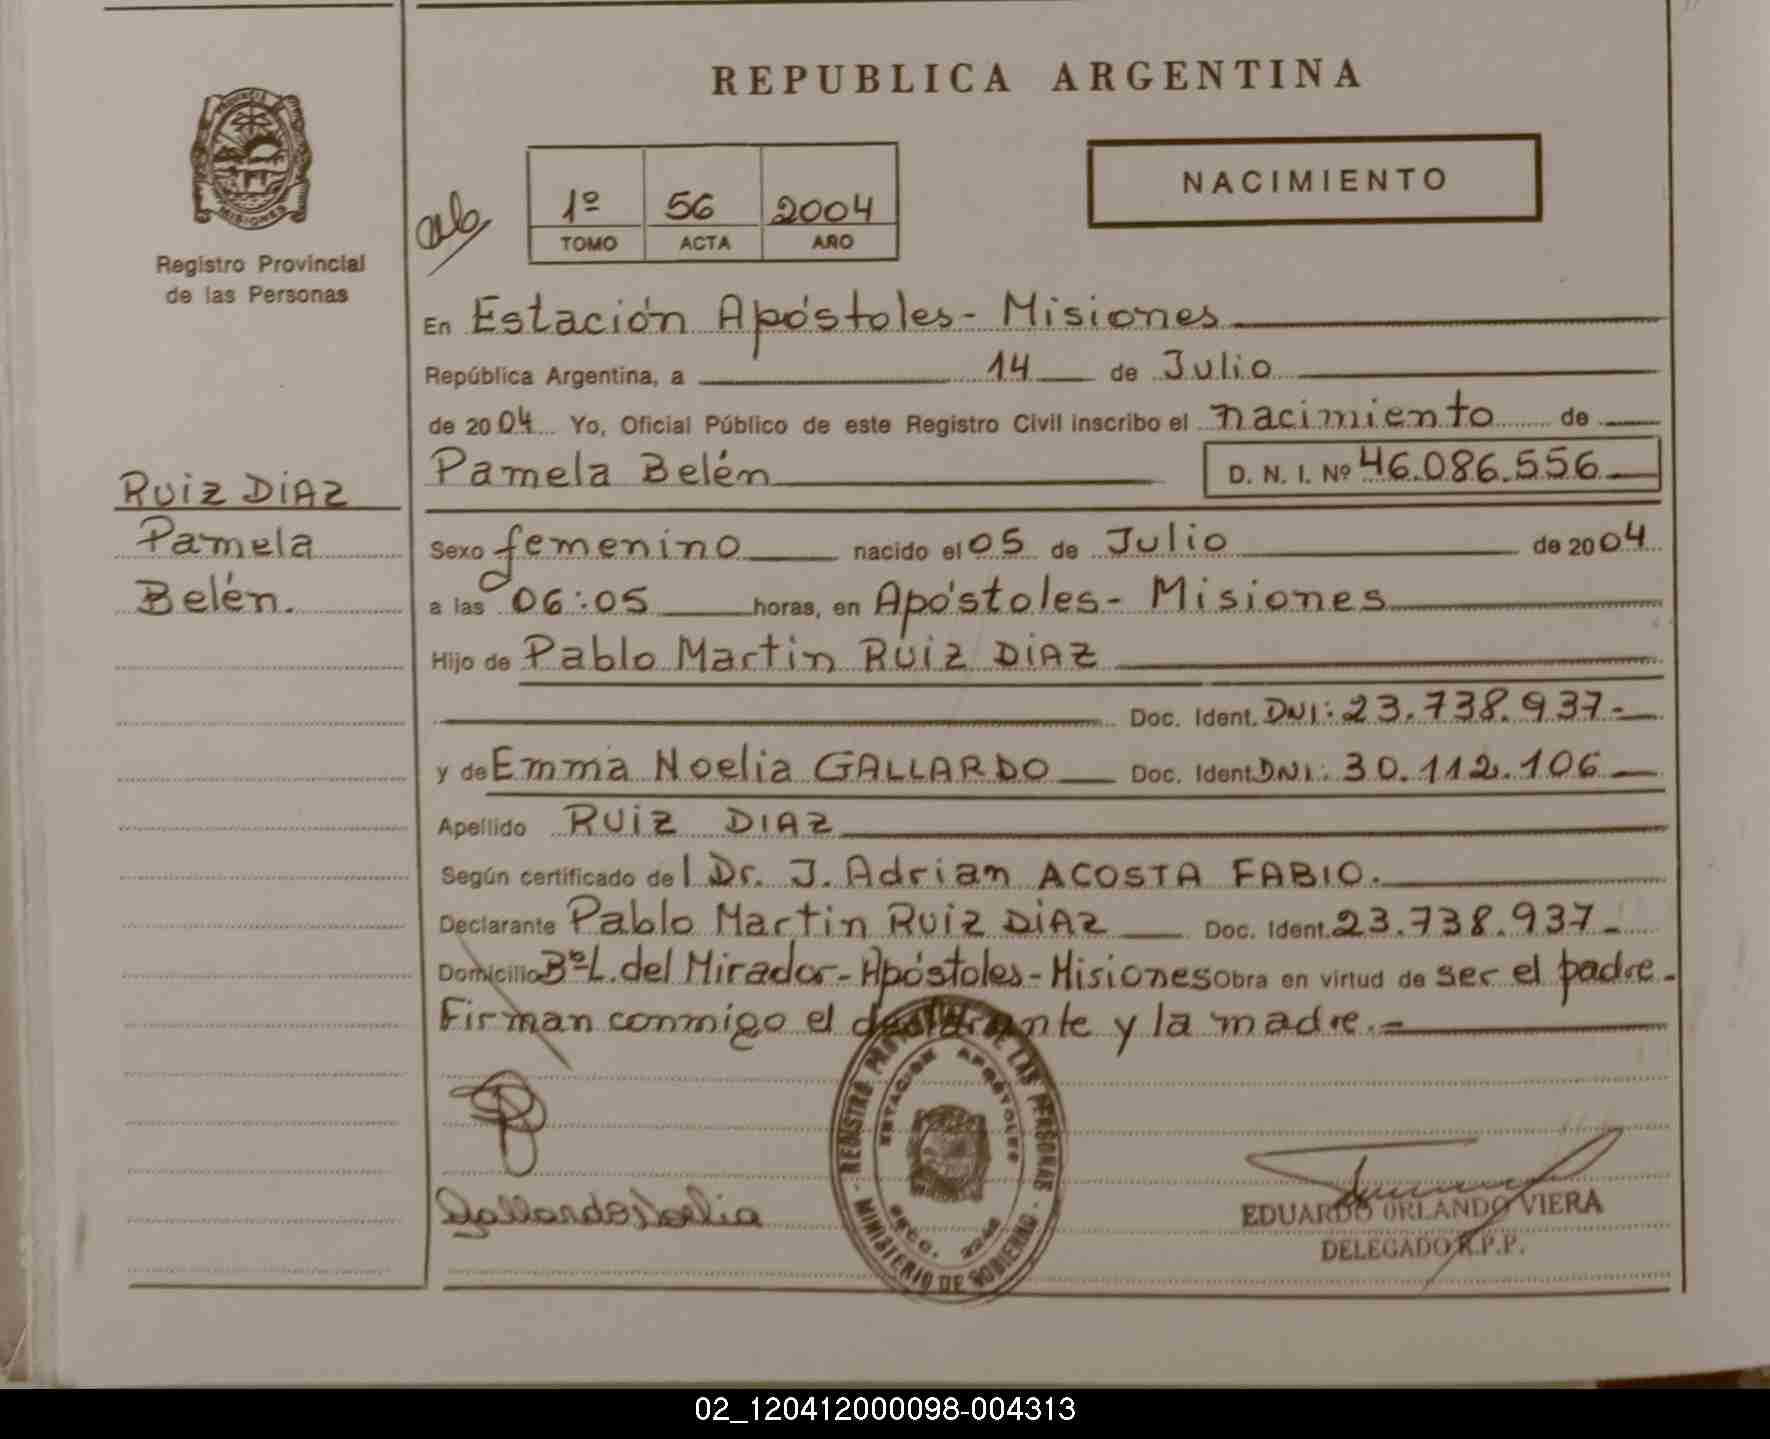 REPUBLICA ARGENTINA
NACIMIENTO
1º 56 2004
TOMO ACTA AÑO
Registro Provincial
de las Personas
En Estación Apóstoles - Misiones
República Argentina, a 14 de Julio
de 2004 Yo, Oficial Público de este Registro Civil inscribo el nacimiento de
Pamela Belén D. N. I. Nº 46.086.556
RUIZ DIAZ
Pamela
Belén.
Sexo femenino nacido el 05 de Julio de 2004
a las 06:05 horas, en Apóstoles - Misiones
Hijo de Pablo Martin RUIZ DIAZ
Doc. Ident. DNI: 23.738.937-
y de Emma Noelia GALLARDO Doc. Ident. DNI: 30.112.106
Apellido RUIZ DIAZ
Según certificado del Dr. J. Adrian ACOSTA FABIO.
Declarante Pablo Martin RUIZ DIAZ Doc. Ident. 23.738.937-
Domicilio Bº L. del Mirador - Apóstoles - Misiones Obra en virtud de ser el padre.
Firman conmigo el declarante y la madre.=
Gallardo Noelia
REGISTRO PROVINCIAL DE LAS PERSONAS
ESTACION APOSTOLES
MINISTERIO DE GOBIERNO
EDUARDO ORLANDO VIERA
DELEGADO R.P.P.
PROVINCIA
MISIONES
02_120412000098-004313